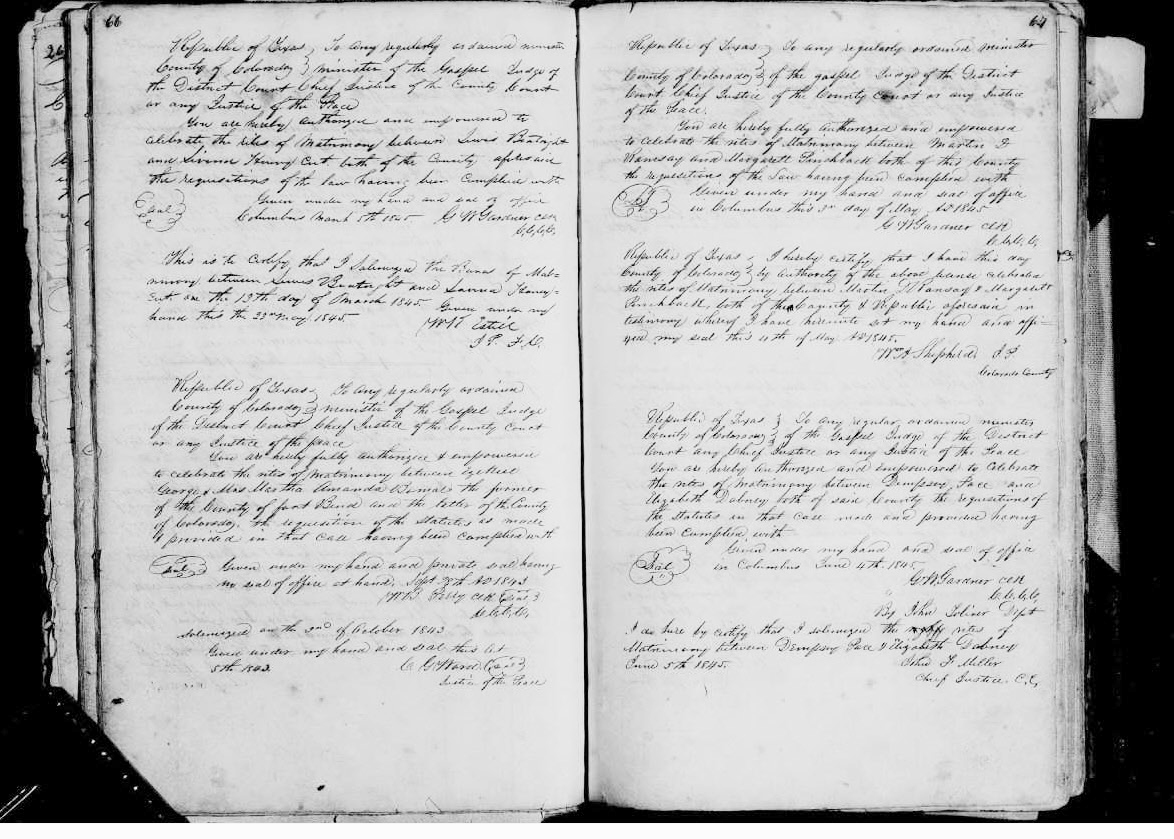 66
Republic of Texas } To any regularly ordained minister
County of Colorado } minister of the Gosspel Judge of
the District Court Chief Justice of the County Court
or any Justice of the Peace
You are hereby Authorized and empowered to
celebrate the rites of Matrimony between Lewis
and both of the County aforesaid
the requisitions of the law having been complied with
Seal Given under my hand and seal of office
Columbus March 5th 1845 G W Gardner Clk
C.C.C.C.
This is to Certify that I solemnized the of Mat-
rimony between Lewis and
on the 13th day of March 1845 Given under my
hand this the 23rd May 1845
Wm Estill
J. P. F. C.
Republic of Texas } To any regularly ordained
County of Colorado } minister of the Gospel Judge
of the District Court Chief Justice of the County Court
or any Justice of the peace
You are hereby fully authorized & empowered
to celebrate the rites of Matrimony between
George & Mrs Martha Amanda the former
of the County of fort Bend and the letter of the County
of Colorado, the requisition of the Statutes as made
& provided in that Case having been complied with
Seal Given under my hand and private seal having
no seal of office at hand, Sept 28th AD 1843
W B Perry Clk Seal
C.C.C.C.
Solemnized on the 2nd of October 1843
Given under my hand and seal this Oct
5th 1843. C G Ward Seal
Justice of the Peace
64
Republic of Texas } To any regularly ordained Minister
County of Colorado } of the gaspel Judge of the District
Court Chief Justice of the County Court or any Justice
of the Peace.
You are hereby fully Authorized and empowered
to celebrate the rites of Matrimony between Martin D
Ramsay and Margarett Pinchback both of this County
the requisitions of the Law having been complied with
Given under my hand and seal of office
in Columbus this 3rd day of May AD 1845
G W Gardner Clk
C.C.C.C.
Republic of Texas } I hereby certify that I have this day
County of Colorado } by Authority of the above license celebrated
the rites of Matrimony between Martin D Ramsay & Margarett
Pinchback, both of the County & Republic aforesaid in
testimony whereof I have hereunto set my hand and affi-
xed my seal this 4th of May AD 1845.
Wm A Shepherd J. P
Colorado County
Republic of Texas } To any regular, ordained minister
County of Colorado } of the Gospel Judge of the District
Court any Chief Justice or any Justice of the Peace
You are hereby Authorized and empowered to Celebrate
the rites of Matrimony between Dempsey Pace and
Elizabeth Dabney both of said County the requisitions of
the Statutes in that Case made and provided having
been Complied with
Given under my hand and seal of office
Seal in Columbus June 4th 1845.
G W Gardner Clk
C.C.C.C.
By John Toliver Dept
I do here by certify that I solemnized the rites of
Matrimony between Dempsey Pace & Elizabeth Dabney
June 5th 1845. John F Miller
Chief Justice. C.C.